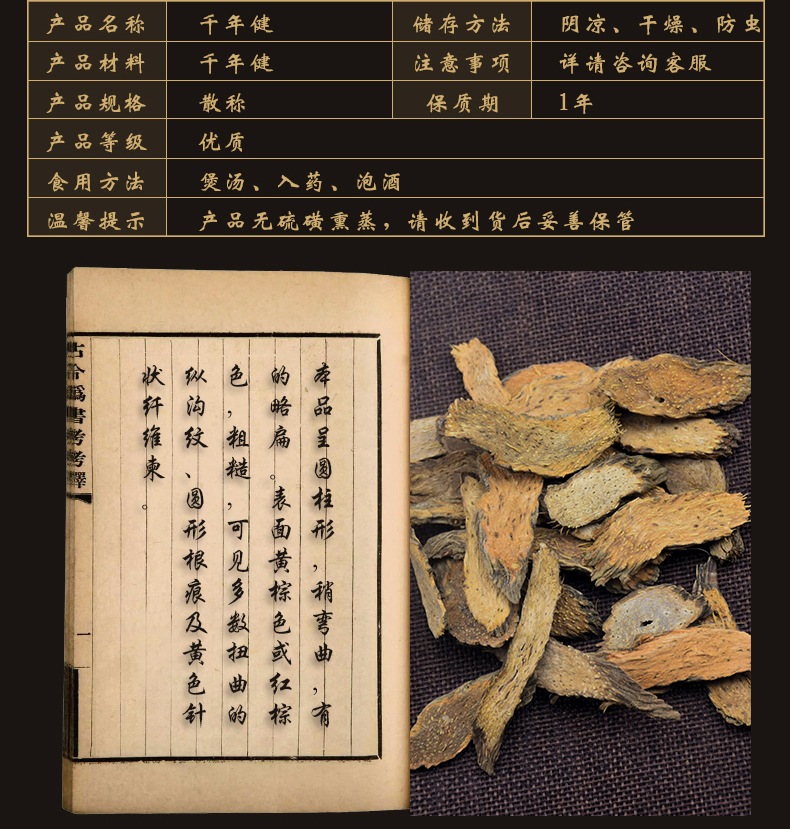 产品名称 千年健 储存方法 阴凉、干燥、防虫
产品材料 千年健 注意事项 详请咨询客服
产品规格 散称 保质期 1年
产品等级 优质
食用方法 煲汤、入药、泡酒
温馨提示 产品无硫磺熏蒸，请收到货后妥善保管
本品呈圆柱形，稍弯曲，有
的略扁。表面黄棕色或红棕
色，粗糙，可见多数扭曲的
纵沟纹、圆形根痕及黄色针
状纤维束。
古今伪书考考释
一